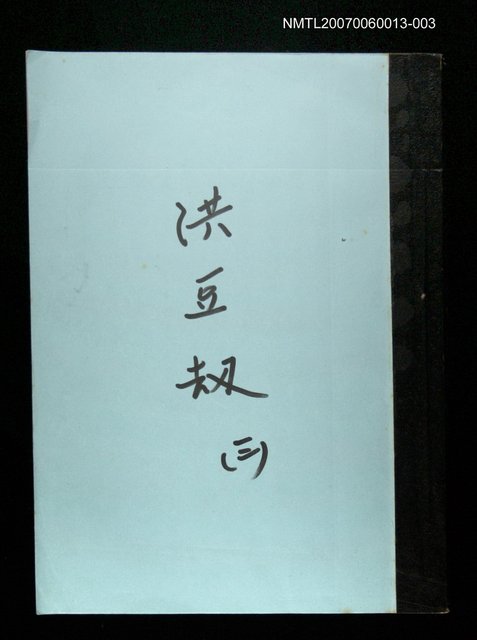 NMTL20070060013-003
洪
豆
刼
(三)